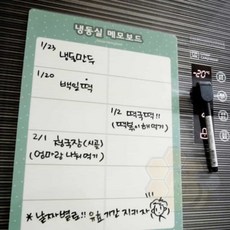 냉동실 메모보드
1/23
냉동만두
1/20
백일떡
1/2 떡국떡!!
(떡볶이해먹기)
2/1 청국장(시골)
(엄마랑 나눠먹기)
* 날짜별로!! 유통기한 지키자
-20°